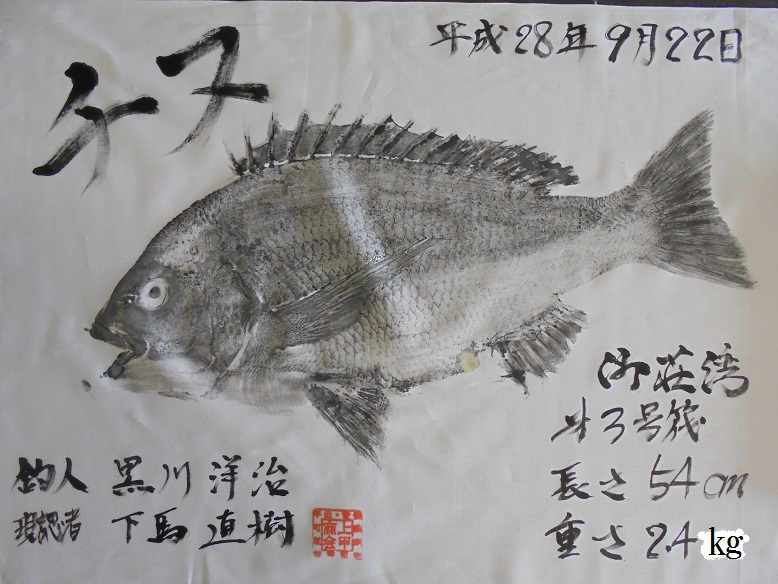 平成28年9月22日
チヌ
御荘湾
才3号筏
長さ 54cm
重さ 2.4 kg
釣人 黒川 洋治
現認者 下馬 直樹